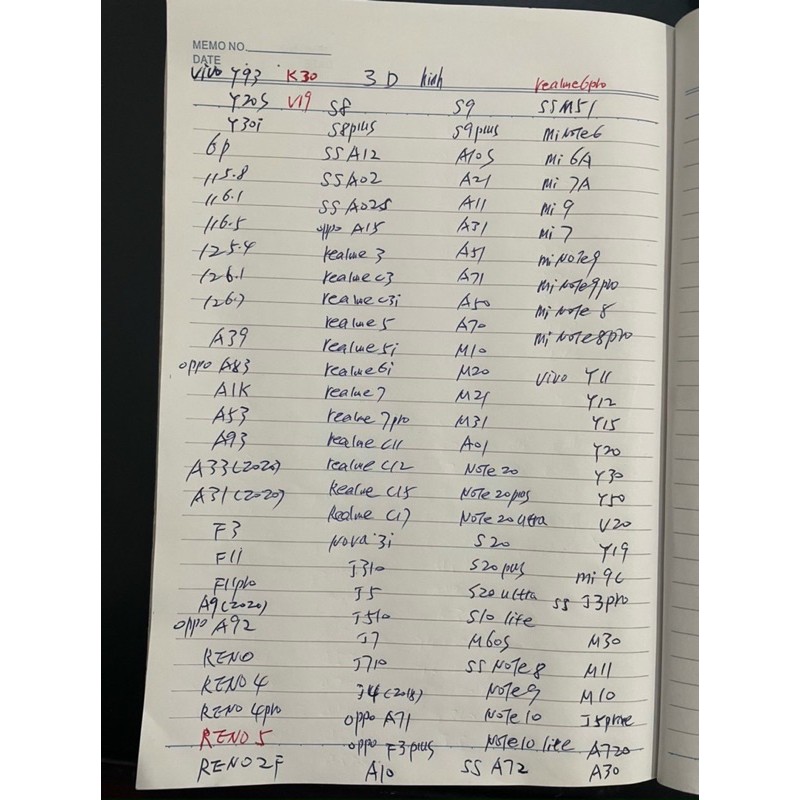 MEMO NO.
DATE
Vivo Y93 K30 3D kính realme6pro
Y20S V19 S8 S9 SSM51
Y30i S8plus S9plus MiNote6
6p SSA12 A10S Mi 6A
115.8 SSA02 A21 Mi 7A
116.1 SSA02S A11 Mi 9
116.5 oppo A15 A31 Mi 7
125.4 realme 3 A51 miNote9
126.1 realme c3 A71 MiNote9pro
126.7 realme c3i A50 Mi Note 8
realme 5 A70 Mi Note8pro
A39 realme 5i M10
oppo A83 realme 6i M20 Vivo Y11
A1K realme 7 M21 Y12
A53 realme 7pro M31 Y15
A93 realme C11 A01 Y20
A33(2020) realme C12 Note 20 Y30
A31(2020) Realme C15 Note 20plus Y50
Realme C17 Note 20 ultra V20
F3 Nova 3i S20 Y19
F11 J310 S20 plus mi 9C
F11pro J5 S20 ultra SS J3pro
A9(2020) J510 S10 lite
oppo A92 J7 M60S M30
RENO J710 SS Note 8 M11
RENO 4 J4(2018) Note9 M10
RENO 4pro oppo A71 Note 10 J5prime
RENO 5 oppo F3plus Note10 lite A720
RENO2F A10 SS A72 A30